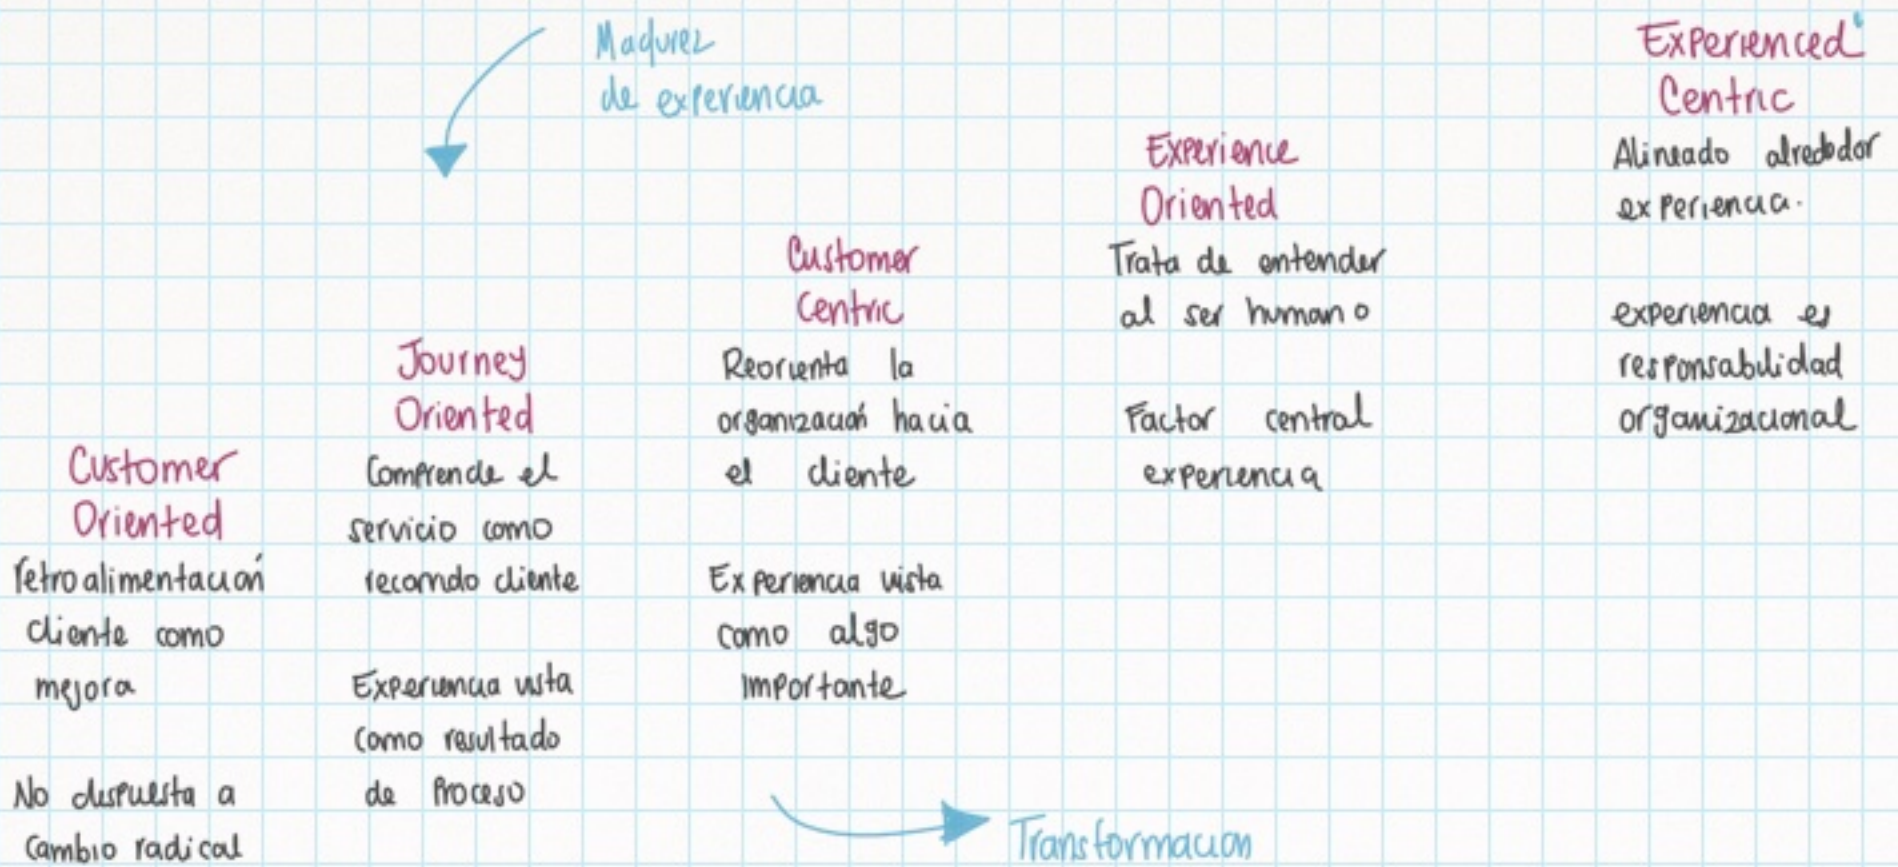 Madurez
de experiencia
Customer
Oriented
retroalimentación
cliente como
mejora
No dispuesta a
cambio radical
Journey
Oriented
Comprende el
servicio como
recorrido cliente
Experiencia vista
como resultado
de Proceso
Customer
Centric
Reorienta la
organización hacia
el cliente
Experiencia vista
como algo
importante
Experience
Oriented
Trata de entender
al ser humano
Factor central
experiencia
Experienced
Centric
Alineado alrededor
experiencia.
experiencia es
responsabilidad
organizacional
Transformacion